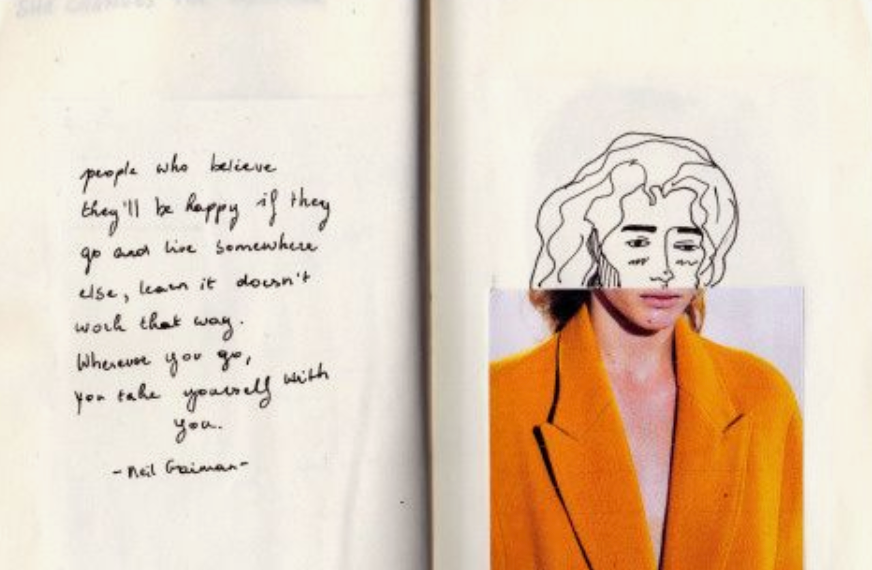 people who believe
they'll be happy if they
go and live somewhere
else, learn it doesn't
work that way.
Wherever you go,
you take yourself with
you.
-Neil Gaiman-